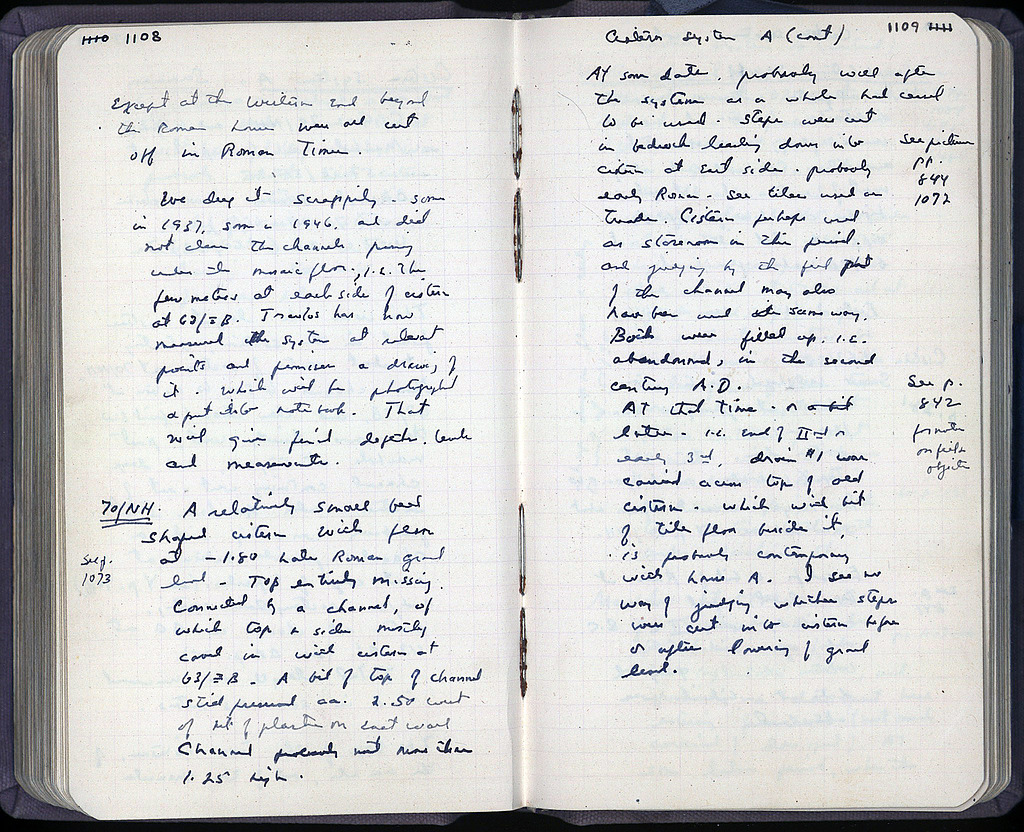 1110 1108
Except at the western end beyond
the Roman house were all cut
off in Roman Times.
We dug it scrappily - some
in 1937, some in 1946, and did
not clean the channels passing
under the mosaic floor, i.e. the
few metres at each side of cistern
at 63/ΞB. Travlos has now
measured the system at relevant
points and promises a drawing of
it - which will be photographed
& put into notebook. That
will give final depths, levels
and measurements.
70/NH. A relatively small
shaped cistern with floor
See p.
1073
at -1.80 below Roman ground
level - Top entirely missing.
Connected by a channel, of
which top & side mostly
caved in with cistern at
63/ΞB - A bit of top of channel
still preserved ca. 2.50 west
of bit of plaster on east wall
Channel probably not more than
1.25 high.
Cistern System A (cont)
1109 1111
At some date, probably well after
the system as a whole had ceased
to be used - steps were cut
in bedrock leading down into
cistern at East side - probably
early Roman - see tiles used as
treads. Cistern perhaps used
as storeroom in this period.
See picture
pp.
844
1072
and judging by the fill part
of the channel may also
have been used in the same way.
Both were filled up, i.e.
abandoned, in the second
century A.D.
At that time - or a bit
later - i.e. end of IInd or
early 3rd, drain #1 was
carried across top of old
cistern - which with bit
of tile floor beside it,
is probably contemporary
with house A. I see no
way of judging whether steps
were cut into cistern before
or after lowering of ground
level.
See p.
842
for note
on
objects